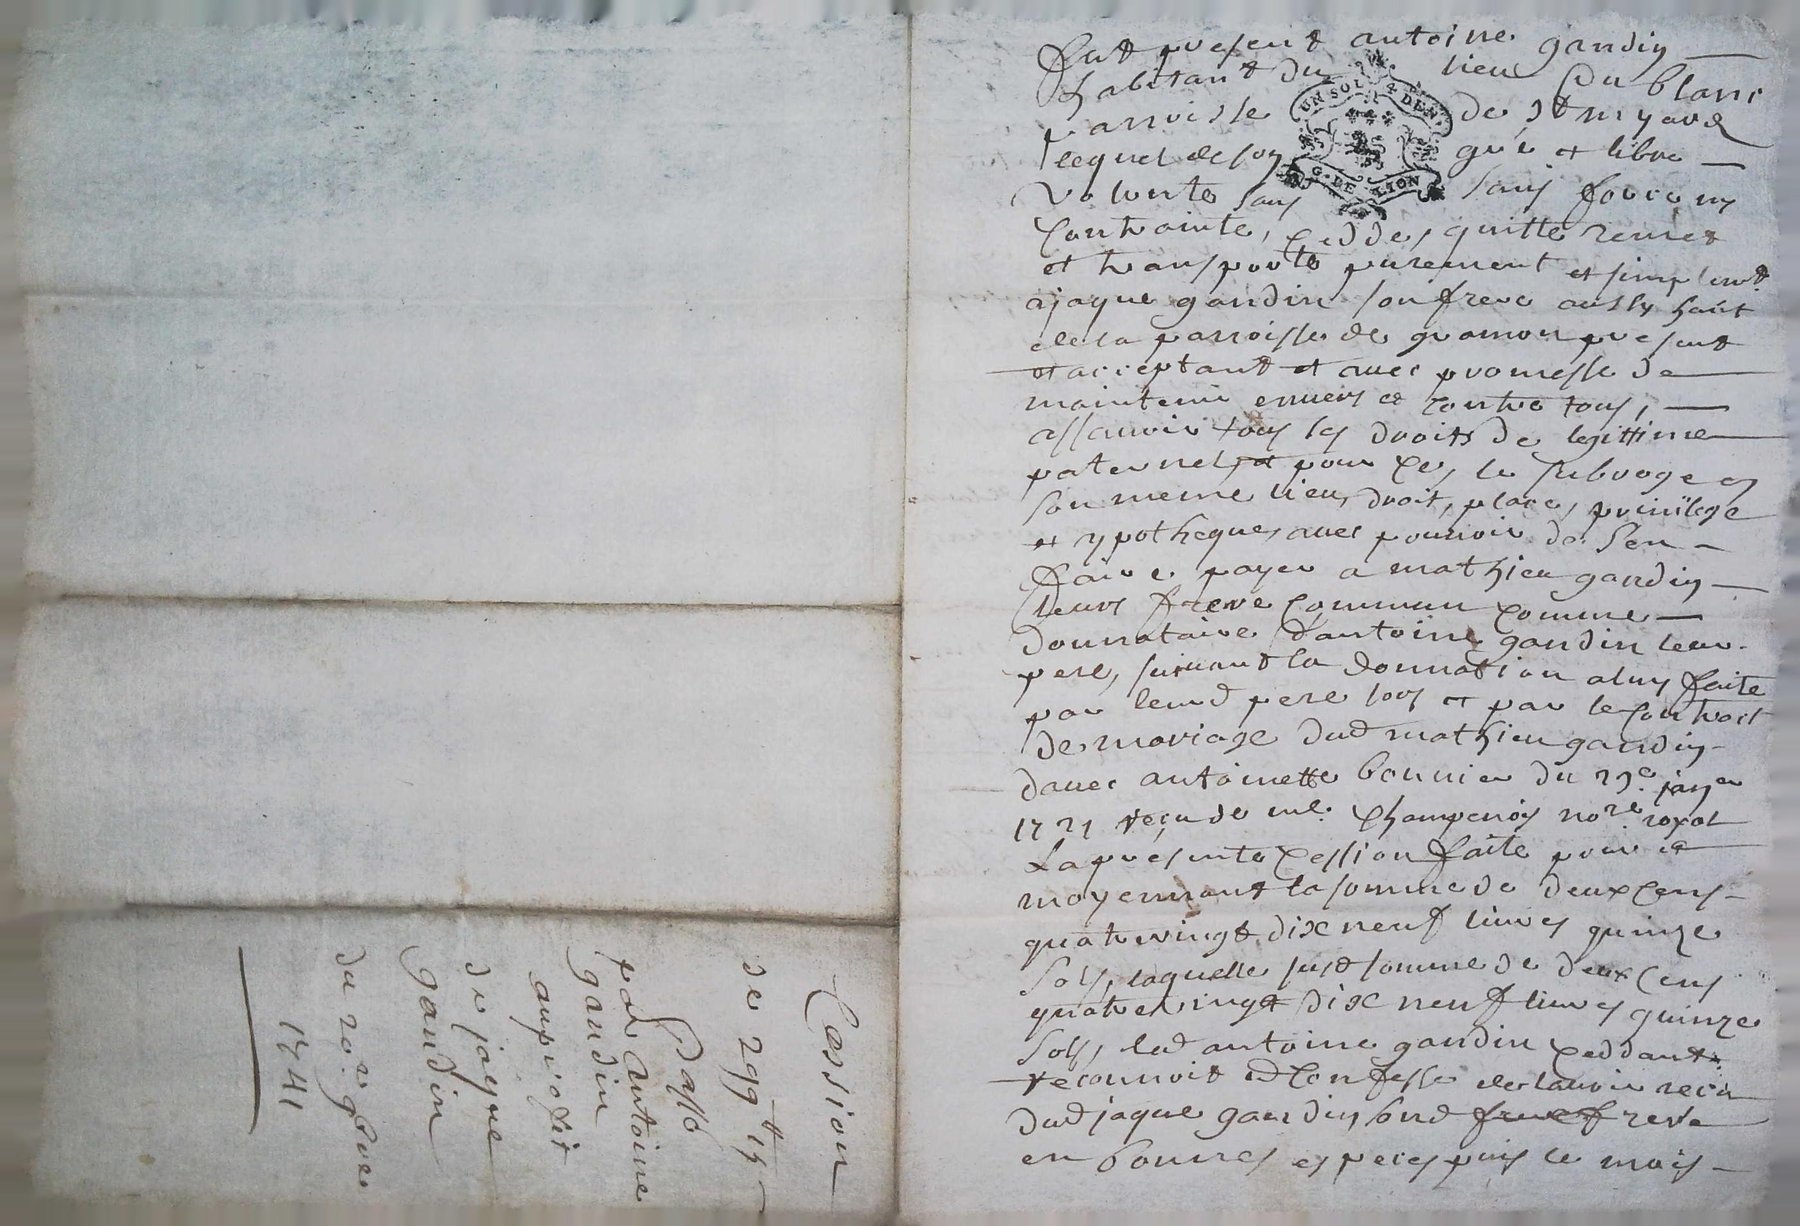 Cession
de 299tt 15
passé
par Antoine
gandin
au profit
de jaque
gandin
du 20e 9bre
1741
fut present antoine gandin
habitant du lieu du blanc
parroisse de st myard
UN SOL 4 DEN.
G. DE LION
lequel de son gré et libre
volonte sans sans force ny
contrainte, cedde, quitte remet
et transporte purement et simplemt
a jaque gandin son frere aussy hant
de la parroisse de present
et acceptant et avec promesse de
maintenir envers et contre tous,
assavoir tous les droits de legittime
paternels et pour ce, le subroge en
son meme lieu, droit, place, privilege
et ypotheques avec pouvoir de sen
faire payer a mathieu gandin
leur frere commun comme
donnataire dantoine gandin leur
pere, suivant la donnation a luy faite
par leurd pere lors et par le contract
de mariage dud mathieu gandin
davec antoinette bonnier du janer
1721 reçu de me Champenois nore royal
La presente cession faite pour et
moyennant la somme de deux cens
quatrevingt dix neuf livres quinze
sols, laquelle susd somme de deux cens
quatrevingt dix neuf livres quinze
sols, led antoine gandin ceddant
reconnoit et confesse de lavoir recu
dud jaque gandin sond frere
en bonnes especes puis le mois